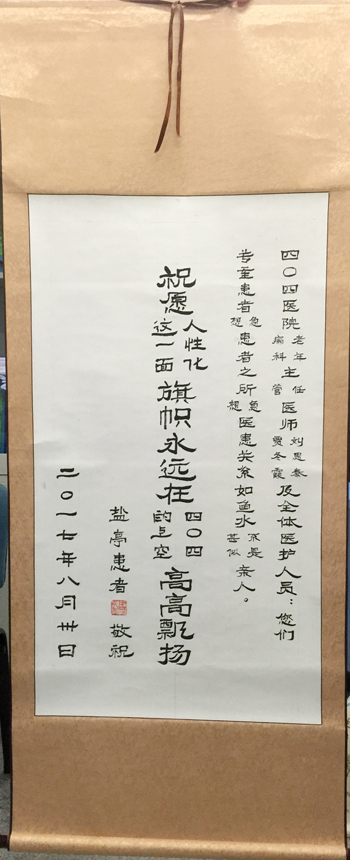 四〇四医院老年病科主任管医师刘思泰贾冬霞及全体医护人员：您们
专至患者急想患者之所急想医患关系如鱼水不是甚似亲人。
祝愿人性化这一面旗帜永远在四〇四的上空高高飘扬
盐亭患者敬祝
二〇一七年八月卅日